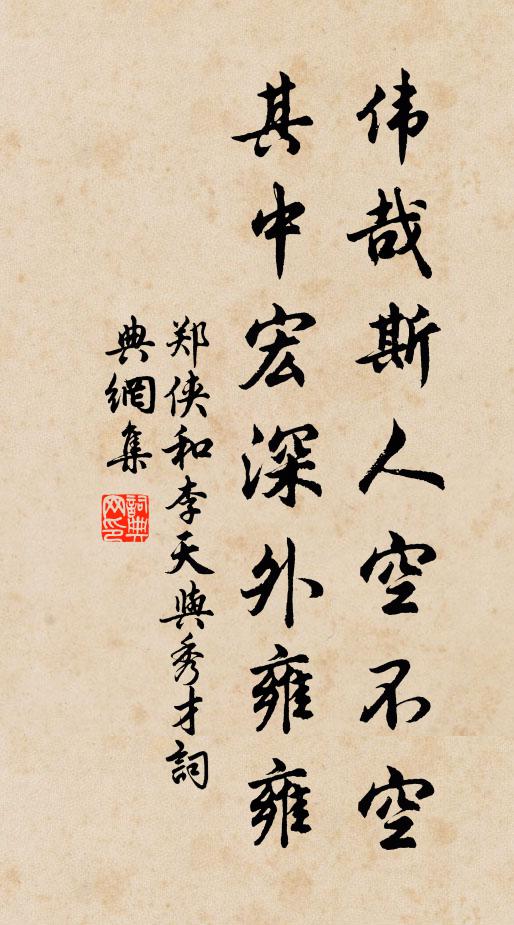 伟哉斯人空不空
其中宏深外雍雍
郑侠和李天與秀才詞
典網集
詞典网印